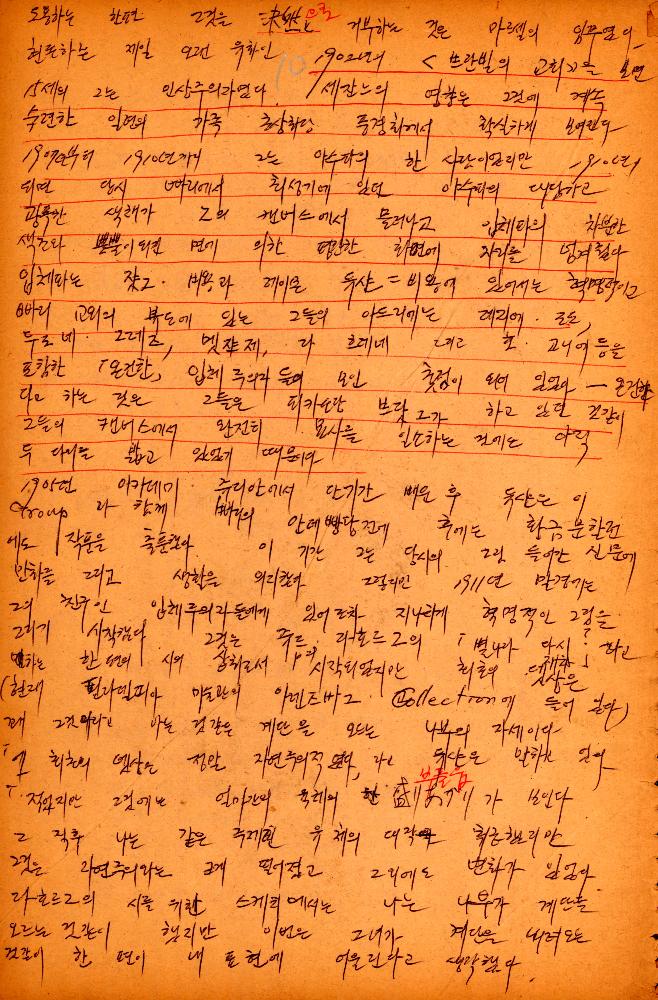 도통하는 한편 그것을 未然으로 거부하는 것은 마르셀의
현존하는 제일 오랜 유화인 1902년의 < 쁘란빌의 교회>를 보면
15세의 그는 인상주의자였다 세잔느의 영향은 그것에 계속
수련한 일련의 가족 초상화랑 풍경화에서 확실하게 보여진다
1907년부터 1910년까지 그는 야수파의 한 사람이었지만 1910년이
되면 당시 빠리에서 최성기에 있던 야수파의 대담하고
광폭한 색채가 그의 캔버스에서 물러나고 입체파의 차분한
색조와 면에 의한 편안한 화면에 자리를 넘겨준다
입체파는 쟈끄·비용과 레이몽 듀샹=비용에 있어서는 혁명적이고
빠리 교외의 북도에 있는 그들의 아뜨리에는
그레즈, 멧쟝제, 라 프레네 그리고 등을
포함한 「온건한」 입체주의자들의 모인 촛점이 되어 있었다 — 온건하
다고 하는 것은 그들은 피카소란 브락끄가 하고 있던 것같이
그들의 캔버스에서 완전히 묘사를 일소하는 것에는 아직
두 다리를 밟고 있었기 때문이다
1905년 아카데미 쥬리안에서 단기간 배운 후 듀샹은 이
Group과 함께 빠리의 안데빵당전에 후에는 황금분할전
에도 작품을 출품했다 이 기간 그는 당시의 그림 들어간 신문에
만화를 그리고 생활을 의지했다 그렇지만 1911년 말경에는
그의 친구인 입체주의자들에게 있어조차 지나치게 혁명적인 그림을
그리기 시작했다 그것은 쥬르·라호르그의 「별나라 다시」 하고
말하는 한편의 시의 삽화로서 시작되었지만 최초의 뎃상은
(현재 필라델피아 미술관의 아렌즈바그·Collection에 들어 있다)
그것이라고 하는 것같은 계단을 오르는 나부의 자세이다
「이 최초의 뎃상은 정말 자연주의적 였다」 라고 듀샹은 말하고 있다
「적었지만 그것에는 얼마간의 육체의 한 盛りあがり 부풀음가 보인다
그 직후 나는 같은 주제의 유채의 대작에 착수했지만
그것은 자연주의와는 크게 떨어졌고 그리에도 변화가 있었다
라호르그의 시를 위한 스케치에서는 나는 나부가 계단을
오르는 것같이 했지만 이번은 그녀가 계단을 내려오는
것같이 한 편이 내 표현에 어울린다고 생각했다